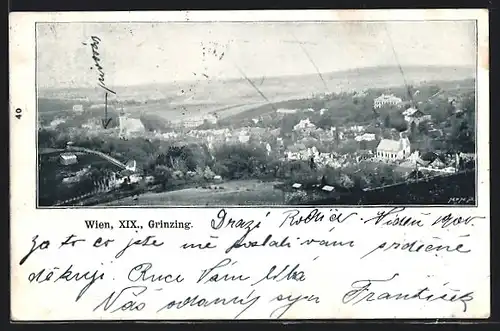 40
Wien, XIX., Grinzing.
Drazí Rodiče Vídeň 1900
za to co jste mě poslali vám srdečně
děkuji. Ruce Vám líbá
Váš oddaný syn František